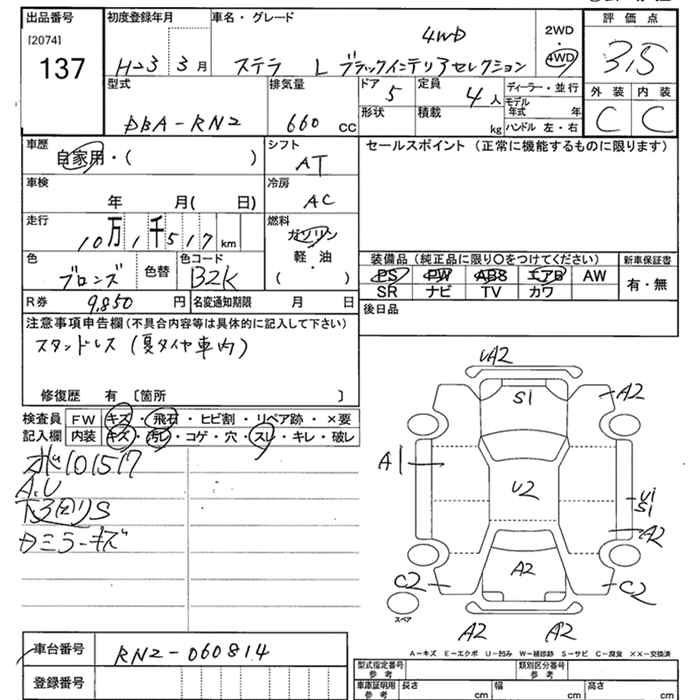 出品番号
[2074]
137
初度登録年月
H-23 3月
車名・グレード
4WD
ステラ L ブラックインテリアセレクション
2WD
・
4WD
評価点
3.5
外装 内装
C C
型式
DBA-RN2
排気量
660 CC
ドア
5
定員
4人
形状
積載
kg
ディーラー・並行
モデル年式 年
ハンドル 左・右
車歴
自家用・( )
シフト
AT
セールスポイント (正常に機能するものに限ります)
車検
年 月( 日)
冷房
AC
走行
10万1千517 km
燃料
ガソリン
軽油
・
( )
色
ブロンズ
色替
色コード
B2K
装備品 (純正品に限り〇をつけてください)
PS PW ABS エアB AW
SR ナビ TV カワ
新車保証書
有・無
R券 9,850 円
名変通知期限 月 日
後日品
注意事項申告欄 (不具合内容等は具体的に記入して下さい)
スタッドレス (夏タイヤ車内)
修復歴 有 〔箇所 〕
検査員記入欄
FW キズ・飛石・ヒビ割・リペア跡・×要
内装 キズ・汚レ・コゲ・穴・スレ・キレ・破レ
101517
A.U
下回りS
ミラーキズ
UA2
S1
A2
A1
U2
U1
S1
A2
A2
C2
C2
スペア
A2 A2
A-キズ E-エクボ U-凹み W-補修跡 S-サビ C-腐食 ××-交換済
車台番号 RN2-060814
登録番号
型式指定番号 参考
類別区分番号 参考
車庫証明用 参考
長さ cm
幅 cm
高さ cm